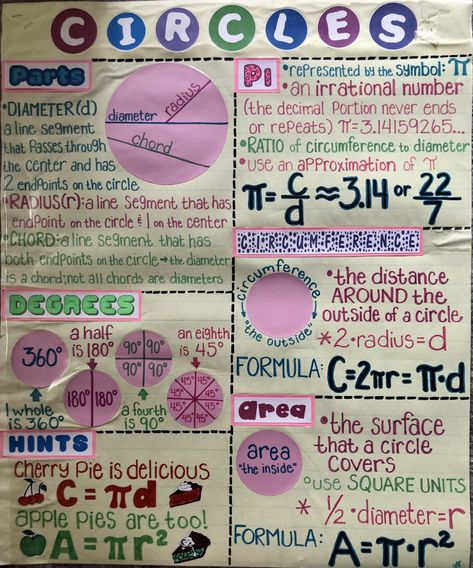 CIRCLES
Parts
diameter
radius
chord
•DIAMETER(d)
a line segment
that passes through
the center and has
2 endpoints on the circle
•RADIUS(r): a line segment that has
endpoint on the circle & 1 on the center
•CHORD: a line segment that has
both endpoints on the circle → the diameter
is a chord; not all chords are diameters
Pi
•represented by the symbol: π
•an irrational number
(the decimal portion never ends
or repeats) π=3.14159265...
•RATIO of circumference to diameter
•use an approximation of π
π = C/d ≈ 3.14 or 22/7
CIRCUMFERENCE
circumference
"the outside"
•the distance
AROUND the
outside of a circle
*2•radius=d
FORMULA: C=2πr=π•d
DEGREES
360°
1 whole
is 360°
a half
is 180°
180° 180°
90° 90°
90° 90°
a fourth
is 90°
an eighth
is 45°
45° 45°
45° 45°
45° 45°
45° 45°
HINTS
cherry Pie is delicious
C=πd
apple pies are too!
A=πr²
area
area
"the inside"
•the surface
that a circle
covers
°use SQUARE UNITS
* 1/2•diameter=r
FORMULA: A=π•r²